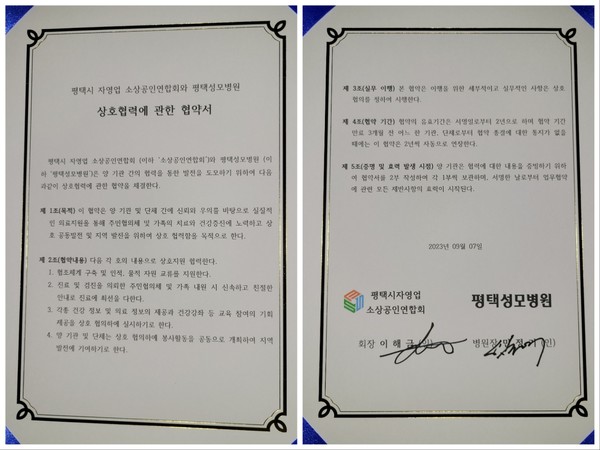 평택시 자영업 소상공인연합회와 평택성모병원
상호협력에 관한 협약서
평택시 자영업 소상공인연합회(이하 '소상공인연합회')와 평택성모병원 (이
하 '평택성모병원')은 양 기관 간의 협력을 통한 발전을 도모하기 위하여 다음
과같이 상호협력에 관한 협약을 체결한다.
제 1조(목적) 이 협약은 양 기관 및 단체 간에 신뢰와 우의를 바탕으로 실질적
인 의료지원을 통해 주민협의체 및 가족의 치료와 건강증진에 노력하고 상
호 공동발전 및 지역 발전을 위하여 상호 협력함을 목적으로 한다.
제 2조(협약내용) 다음 각 호의 내용으로 상호지원 협력한다.
1. 협조체계 구축 및 인적, 물적 자원 교류를 지원한다.
2. 진료 및 검진을 의뢰한 주민협의체 및 가족 내원 시 신속하고 친절한
안내로 진료에 최선을 다한다.
3. 각종 건강 정보 및 의료 정보의 제공과 건강강좌 등 교육 참여의 기회
제공을 상호 협의하에 실시하기로 한다.
4. 양 기관 및 단체는 상호 협의하에 봉사활동을 공동으로 개최하여 지역
발전에 기여하기로 한다.
제 3조(실무 이행) 본 협약은 이행을 위한 세부적이고 실무적인 사항은 상호
협의를 정하여 시행한다.
제 4조(협약 기간) 협약의 유효기간은 서명일로부터 2년으로 하며 협약 기간
만료 3개월 전 어느 한 기관, 단체로부터 협약 종결에 대한 통지가 없을
때에는 이 협약은 2년씩 자동으로 연장한다.
제 5조(증명 및 효력 발생 시점) 양 기관은 협약에 대한 내용을 증빙하기 위하
여 협약서를 2부 작성하여 각 1부씩 보관하며, 서명한 날로부터 업무협약
에 관련 모든 제반사항의 효력이 시작된다.
2023년 09월 07일
평택시자영업
소상공인연합회
평택성모병원
회장 이 해 금 (인)
병원장 (인)